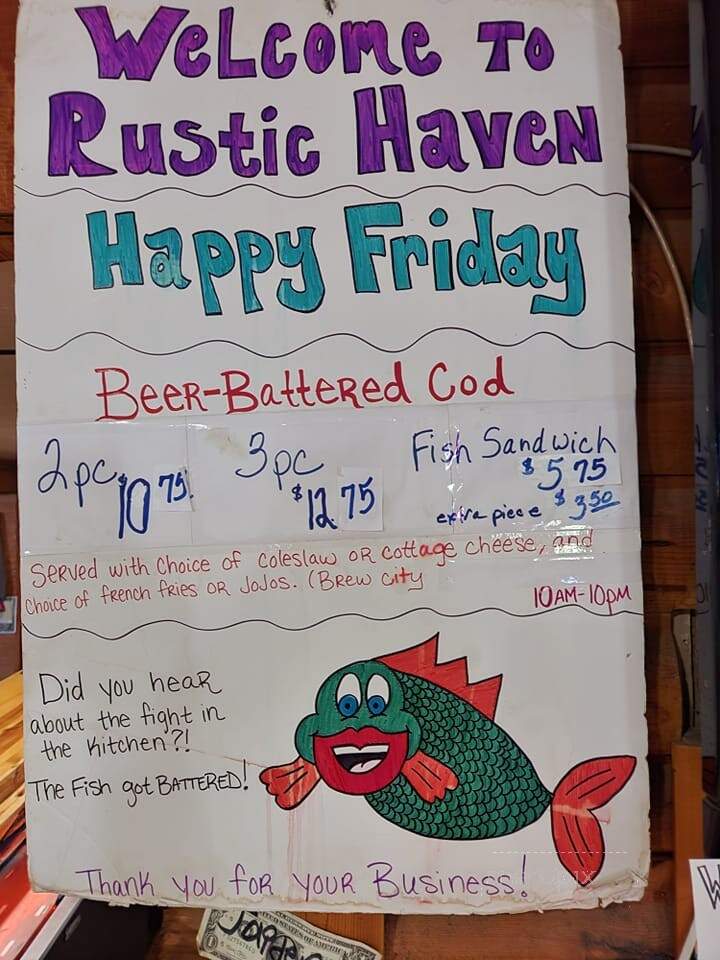 WeLcome To
Rustic Haven
Happy Friday
BeeR-BatteReD Cod
2pc $10 75
3pc $12 75
Fish Sandwich
$5 75
extra piece $3 50
SeRved with Choice of Coleslaw oR cottage cheese, and
Choice of french fries OR JoJos. (BRew city
10AM-10pm
Did you heaR
about the fight in
the Kitchen?!
The Fish got BATTERED!
Thank you foR youR Business!